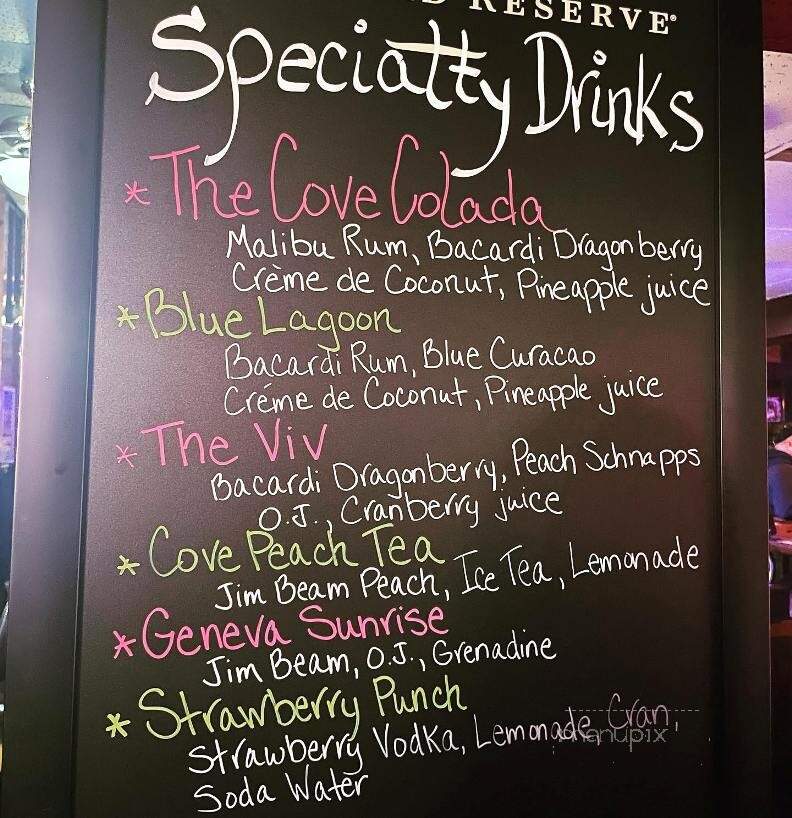 RESERVE®
Specialty Drinks
* The Cove Colada
Malibu Rum, Bacardi Dragonberry
Crème de Coconut, Pineapple juice
* Blue Lagoon
Bacardi Rum, Blue Curacao
Créme de Coconut, Pineapple juice
* The Viv
Bacardi Dragonberry, Peach Schnapps
O.J., Cranberry juice
* Cove Peach Tea
Jim Beam Peach, Ice Tea, Lemonade
* Geneva Sunrise
Jim Beam, O.J., Grenadine
* Strawberry Punch
Strawberry Vodka, Lemonade, Cran,
Soda Water
manupix